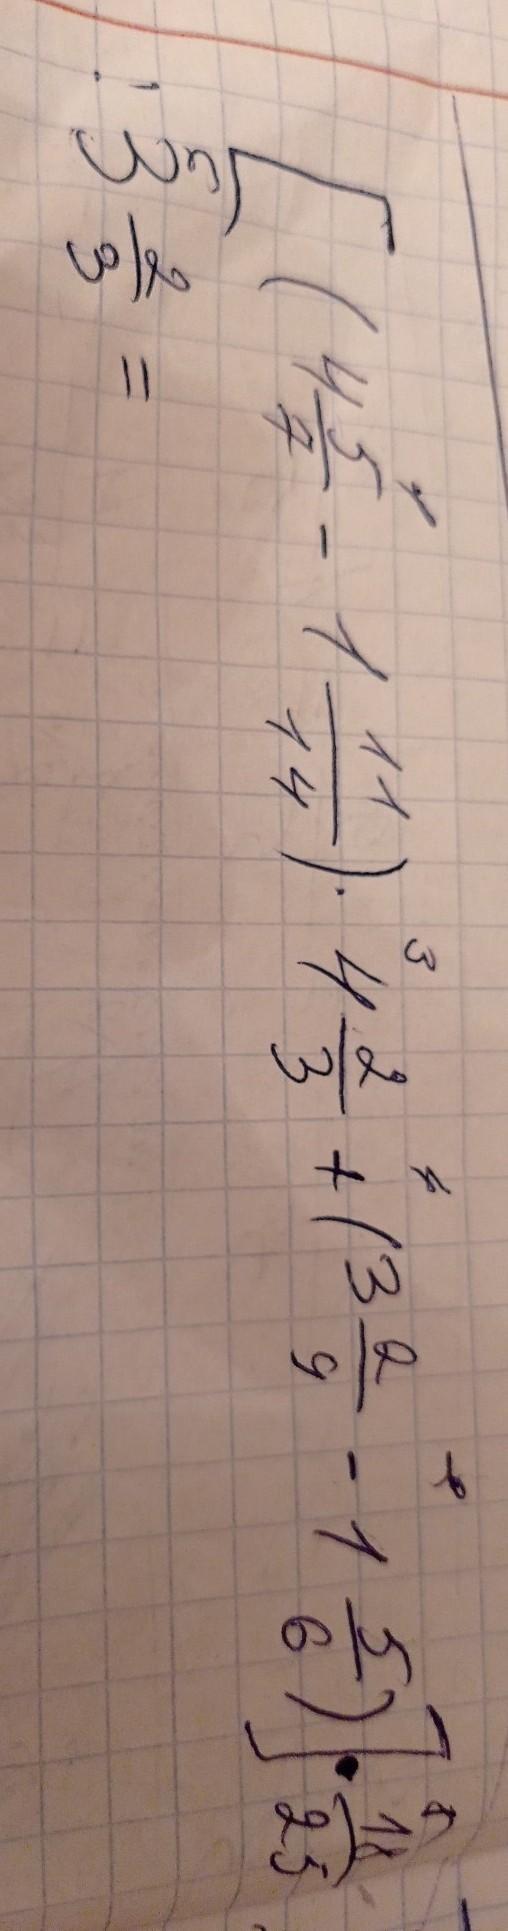 [(4 5/7 - 1 11/14) · 4 2/3 + (3 2/9 - 1 5/6)] · 18/25
: 3 2/3 =